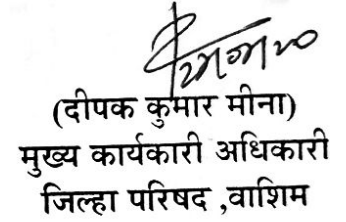 (दीपक कुमार मीना)
मुख्य कार्यकारी अधिकारी
जिल्हा परिषद ,वाशिम